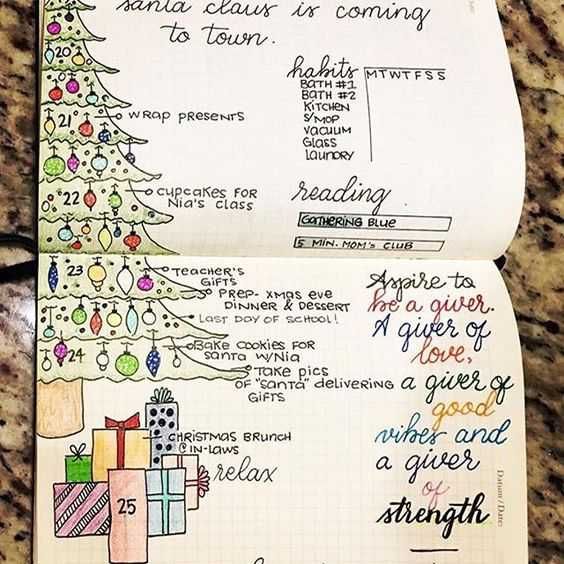 santa claus is coming
to town.
19
20
21
WRAP PRESENTS
22
CUPCAKES FOR
NIA'S CLASS
habits M T W T F S S
BATH #1
BATH #2
KITCHEN
S/MOP
VACUUM
GLASS
LAUNDRY
reading
GATHERING BLUE
5 MIN. MOM'S CLUB
23
TEACHER'S
GIFTS
PREP- XMAS EVE
DINNER & DESSERT
LAST DAY OF SCHOOL!
24
BAKE COOKIES FOR
SANTA W/NIA
TAKE PICS
OF "SANTA" DELIVERING
GIFTS
CHRISTMAS BRUNCH
@IN-LAWS
relax
25
Aspire to
be a giver.
A giver of
love,
a giver of
good
vibes and
a giver
of
strength
Datum / Date: